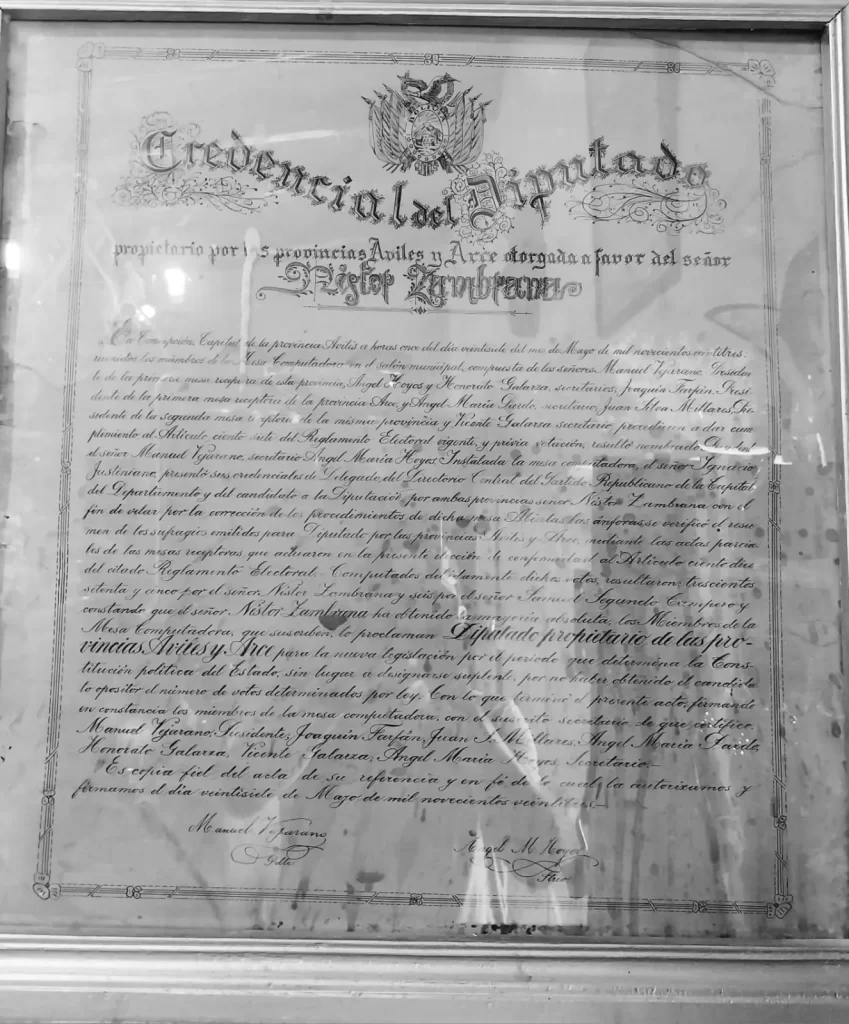 BOLIVIA
Credencial del Diputado
propietario por las provincias Aviles y Arce otorgada a favor del señor
Néstor Zambrana
En Concepción, Capital de la provincia Avilés a horas once del día veintisiete del mes de Mayo de mil novecientos veintitres,
reunidos los miembros de la Mesa Computadora en el salón municipal, compuesta de los señores Manuel Vejarano, Presiden-
te de la primera mesa receptora de esta provincia, Angel Hoyos y Honorato Galarza, secretarios, Joaquin Farfán, Presi-
dente de la primera mesa receptora de la provincia Arce, y Angel María Dardo, secretario, Juan Silva Millares, Pre-
sidente de la segunda mesa receptora de la misma provincia y Vicente Galarza secretario, procedieron a dar cum-
plimiento al Artículo ciento siete del Reglamento Electoral vigente, y prévia votación, resultó nombrado Presidente
el señor Manuel Vejarano, secretario Angel María Hoyos. Instalada la mesa computadora, el señor Ignacio
Justiniano, presentó sus credenciales de Delegado del Directorio Central del Partido Republicano de la Capital
del Departamento y del candidato a la Diputación por ambas provincias señor Néstor Zambrana con el
fin de velar por la corrección de los procedimientos de dicha mesa. Abiertas las ánforas se verificó el resu-
men de los sufragios emitidos para Diputado por las provincias Avilés y Arce, mediante las actas parcia-
les de las mesas receptoras que actuaron en la presente elección de conformidad al Artículo ciento diez
del citado Reglamento Electoral. Computados debidamente dichos votos, resultaron: trescientos
setenta y cinco por el señor Néstor Zambrana y seis por el señor Samuel Segundo Campero y
constando que el señor Néstor Zambrana ha obtenido la mayoría absoluta, los Miembros de la
Mesa Computadora, que suscriben, lo proclaman Diputado propietario de las pro-
vincias, Avilés y Arce para la nueva legislación por el período que determina la Cons-
titución política del Estado, sin lugar a designarse suplente, por no haber obtenido el candida-
to opositor el número de votos determinados por ley. Con lo que terminó el presente acto, firmando
en constancia los miembros de la mesa computadora, con el suscrito secretario de que certifica.
Manuel Vejarano, Presidente; Joaquin Farfán, Juan S. Millares, Angel María Dardo,
Honorato Galarza, Vicente Galarza, Angel María Hoyos, Secretario.—
Es copia fiel del acta de su referencia y en fé de lo cual la autorizamos y
firmamos el día veintisiete de Mayo de mil novecientos veintitres.—
Manuel Vejarano
Pdte
Angel M. Hoyos